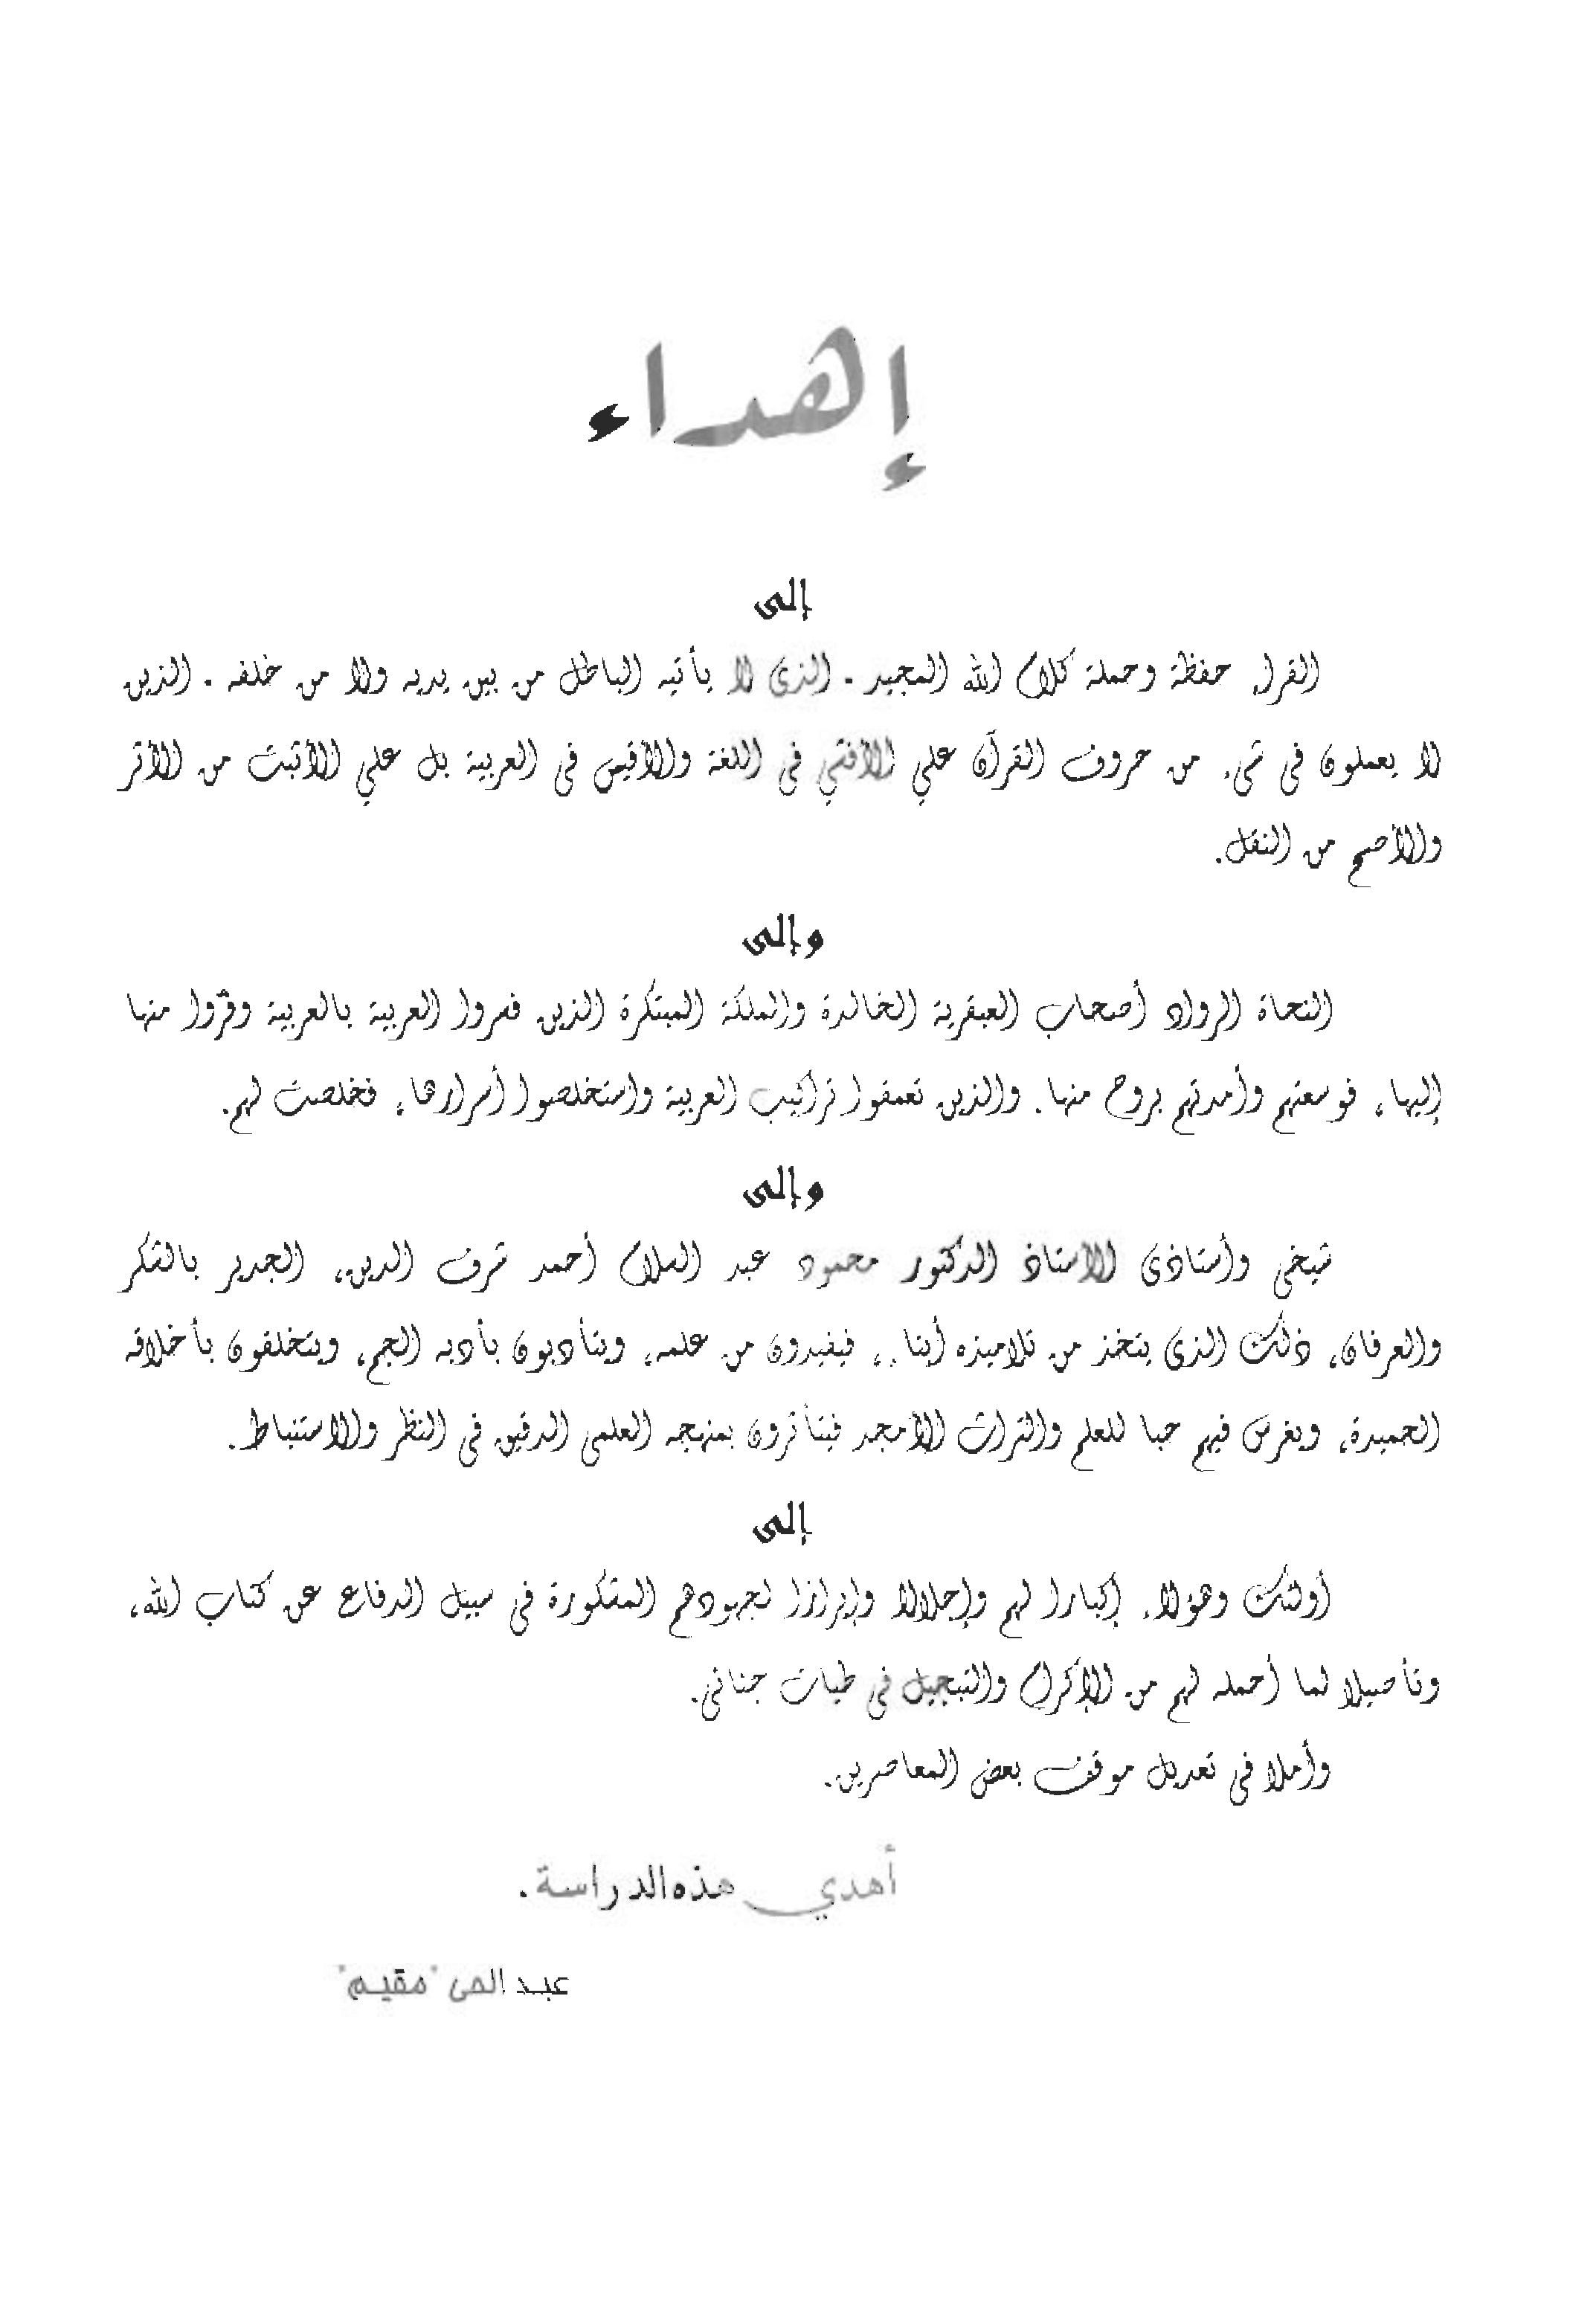 إهداء
إلى
القراء حفظة وحملة كلام الله المجيد . الذى لا يأتيه الباطل من بين يديه ولا من خلفه . الذين
لا يعملون فى شىء من حروف القرآن علي الأفشي فى اللغة والأقيس فى العربية بل علي الأثبت من الأثر
والأصح من النقل.
وإلى
النحاة الرواد أصحاب العبقرية الخالدة والملكة المبتكرة الذين فسروا العربية بالعربية وفروا منها
إليها، فوسعتهم وأمدتهم بروح منها. والذين تعمقوا تراكيب العربية واستخلصوا أسرارها، فخلصت لهم.
وإلى
شيخى وأستاذى الاستاذ الدكتور محمود عبد السلام أحمد شرف الدين، الجدير بالشكر
والعرفان، ذلك الذى يتخذ من تلاميذه أبناء، فيفيدون من علمه، ويتأدبون بأدبه الجم، ويتخلقون بأخلاقه
الحميدة، ويغرس فيهم حبا للعلم والتراث الأمجد فيتأثرون بمنهجه العلمى الدقيق فى النظر والاستنباط.
إلى
أولئك وهؤلاء إكبارا لهم وإجلالا وإبرازا لجهودهم المشكورة فى سبيل الدفاع عن كتاب الله،
وتأصيلا لما أحمله لهم من الإكرام والتبجيل فى طيات جنانى.
وأملا فى تعديل موقف بعض المعاصرين.
أهدي هذه الدراسة.
عبد الحى "مقيم"